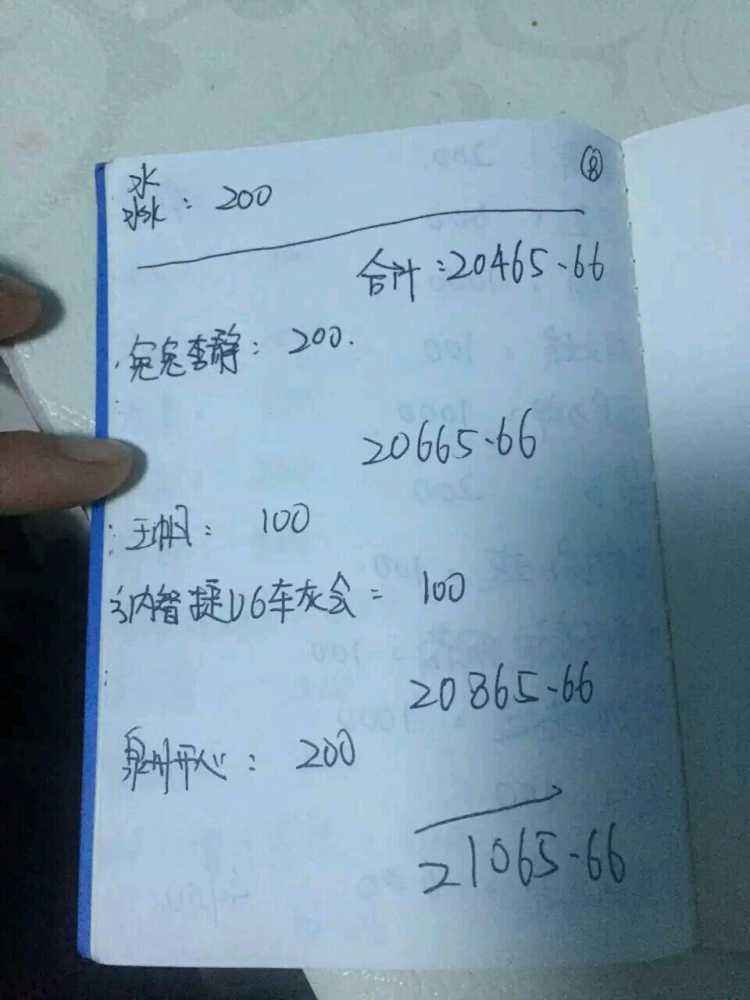 淼: 200 ⑧
合计:20465.66
宛宛李静: 200.
20665.66
王帆: 100
纳智捷U6车友会: 100
20865.66
泉州开心: 200
21065.66